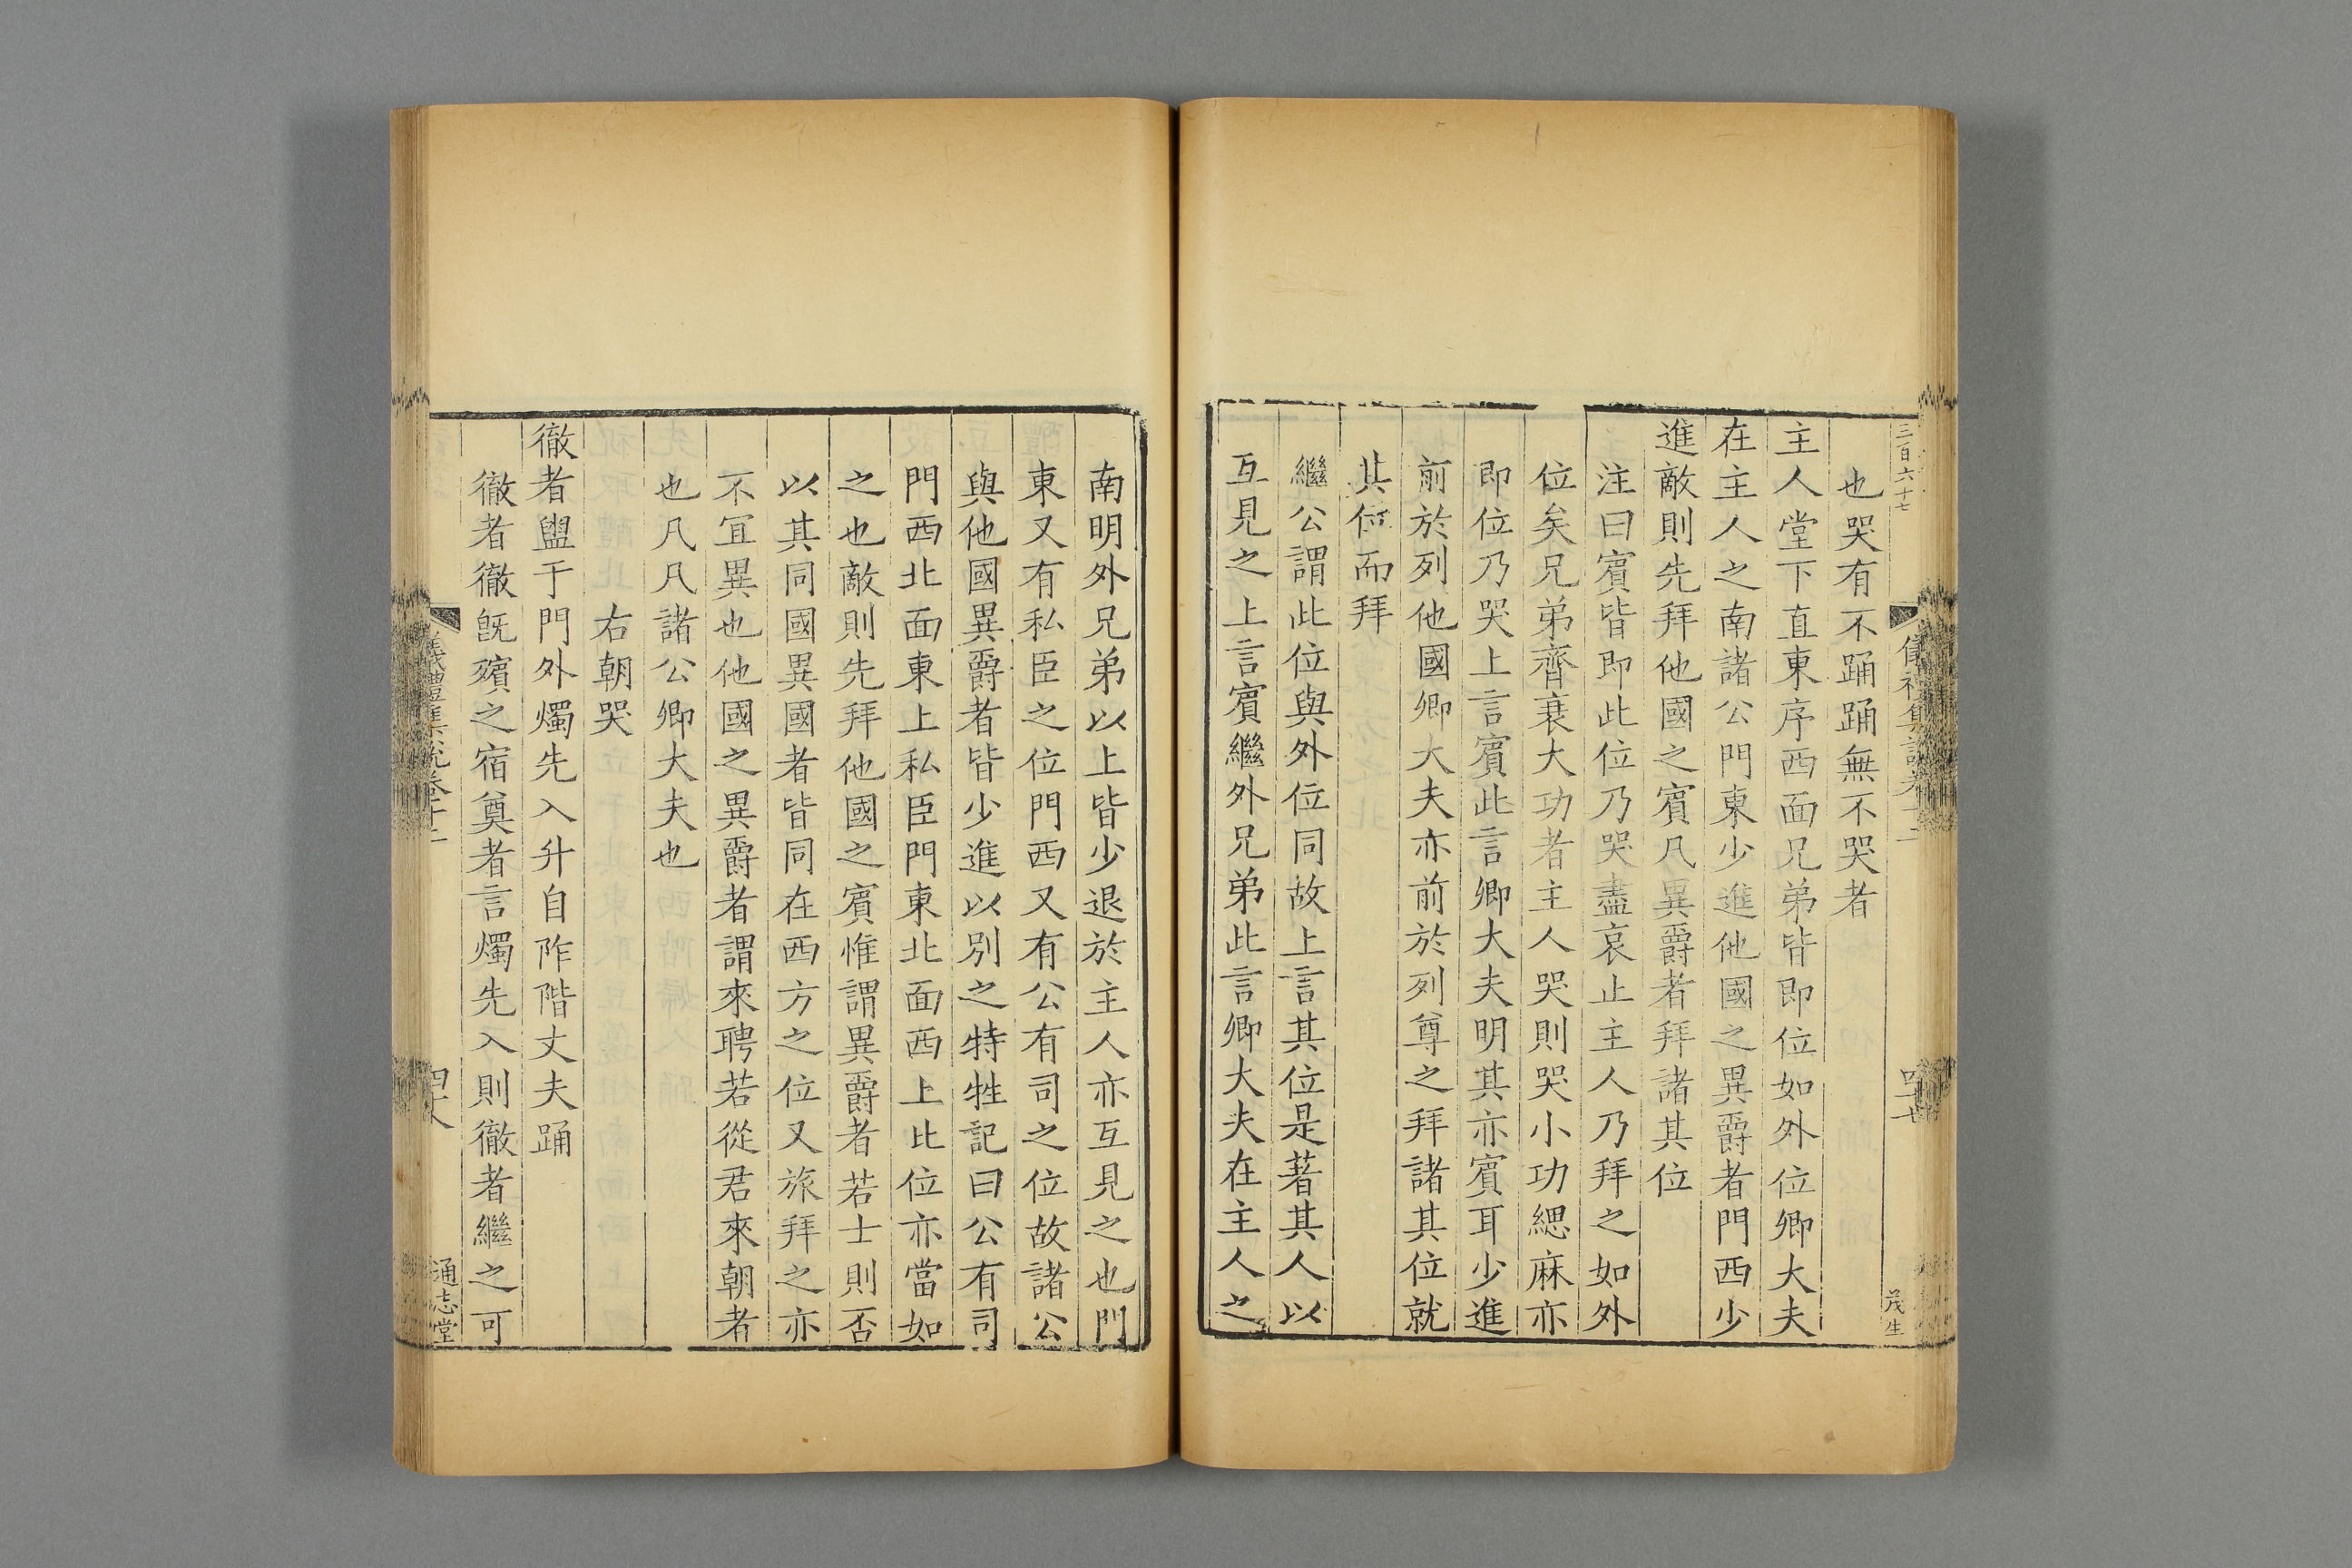 三百六十七
也哭有不踊踊無不哭者
主人堂下直東序西面兄弟皆即位如外位卿大夫
在主人之南諸公門東少進他國之異爵者門西少
進敵則先拜他國之賓凡異爵者拜諸其位
注曰賓皆即此位乃哭盡哀止主人乃拜之如外
位矣兄弟齊衰大功者主人哭則哭小功緦麻亦
即位乃哭上言賓此言卿大夫明其亦賓耳少進
前於列他國卿大夫亦前於列尊之拜諸其位就
其位而拜
繼公謂此位與外位同故上言其位是著其人以
互見之上言賓繼外兄弟此言卿大夫在主人之
茂生
南明外兄弟以上皆少退於主人亦互見之也門
東又有私臣之位門西又有公有司之位故諸公
與他國異爵者皆少進以別之特牲記曰公有司
門西北面東上私臣門東北面西上此位亦當如
之也敵則先拜他國之賓惟謂異爵者若士則否
以其同國異國者皆同在西方之位又旅拜之亦
不宜異也他國之異爵者謂來聘若從君來朝者
也凡凡諸公卿大夫也
右朝哭
徹者盥于門外燭先入升自阼階丈夫踊
徹者徹旣殯之宿奠者言燭先入則徹者繼之可
通志堂